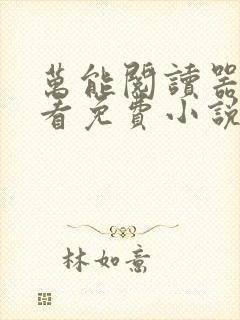 萬能閱讀器
看免費小說
林如意